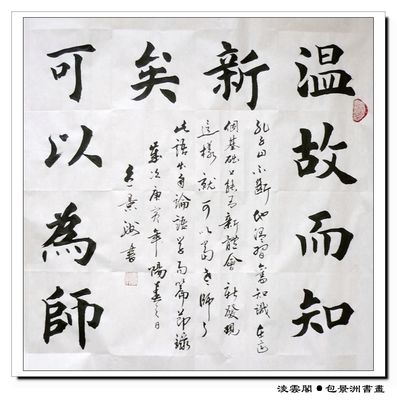 温故而知
新
矣
可以為師
孔子曰不斷地溫習舊知識在這
個基礎上能有新體會新發現
這樣就可以當老師了
此語出自論語為政篇節錄
歲次庚寅年陽春之日
包景洲書
淡雲閣●包景洲書畫